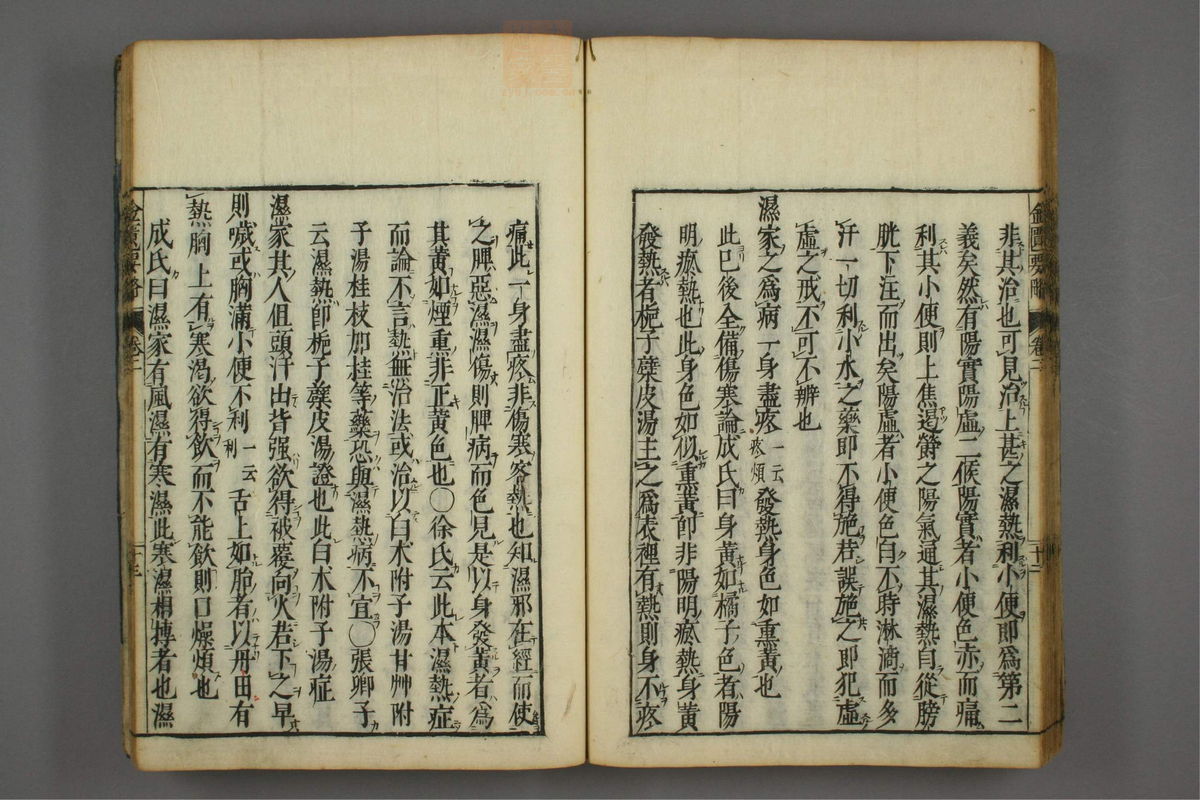 金匱要略 卷二 十二
非其治也可見治上甚之濕熱利小便即爲第二
義矣然有陽實陽虛二候陽實者小便色赤而痛
利其小便則上焦遏欝之陽氣通其濕熱自從膀
胱下注而出矣陽虛者小便色白不時淋滴而多
汗一切利小水之藥即不得施若誤施之即犯虛
虛之戒不可不辨也
濕家之爲病一身盡疼一云疼煩發熱身色如熏黃也
此已後全備傷寒論成氏曰身黃如橘子色者陽
明瘀熱也此身色如似熏黃即非陽明瘀熱身黃
發熱者梔子蘗皮湯主之爲表裡有熱則身不疼
痛此一身盡疼非傷寒客熱也知濕邪在經而使
之脾惡濕濕傷則脾病而色見是以身發黃者爲
其黃如煙熏非正黃色也〇徐氏云此本濕熱症
而論不言熱無治法或治以白朮附子湯甘艸附
子湯桂枝加桂等藥恐與濕熱病不宜〇張卿子
云濕熱即梔子蘗皮湯證也此白朮附子湯症
濕家其人但頭汗出背强欲得被覆向火若下之早
則噦或胸滿小便不利一云利舌上如胎者以丹田有
熱胸上有寒渴欲得飲而不能飲則口燥煩也
成氏曰濕家有風濕有寒濕此寒濕相摶者也濕
金匱要略 卷二 十三